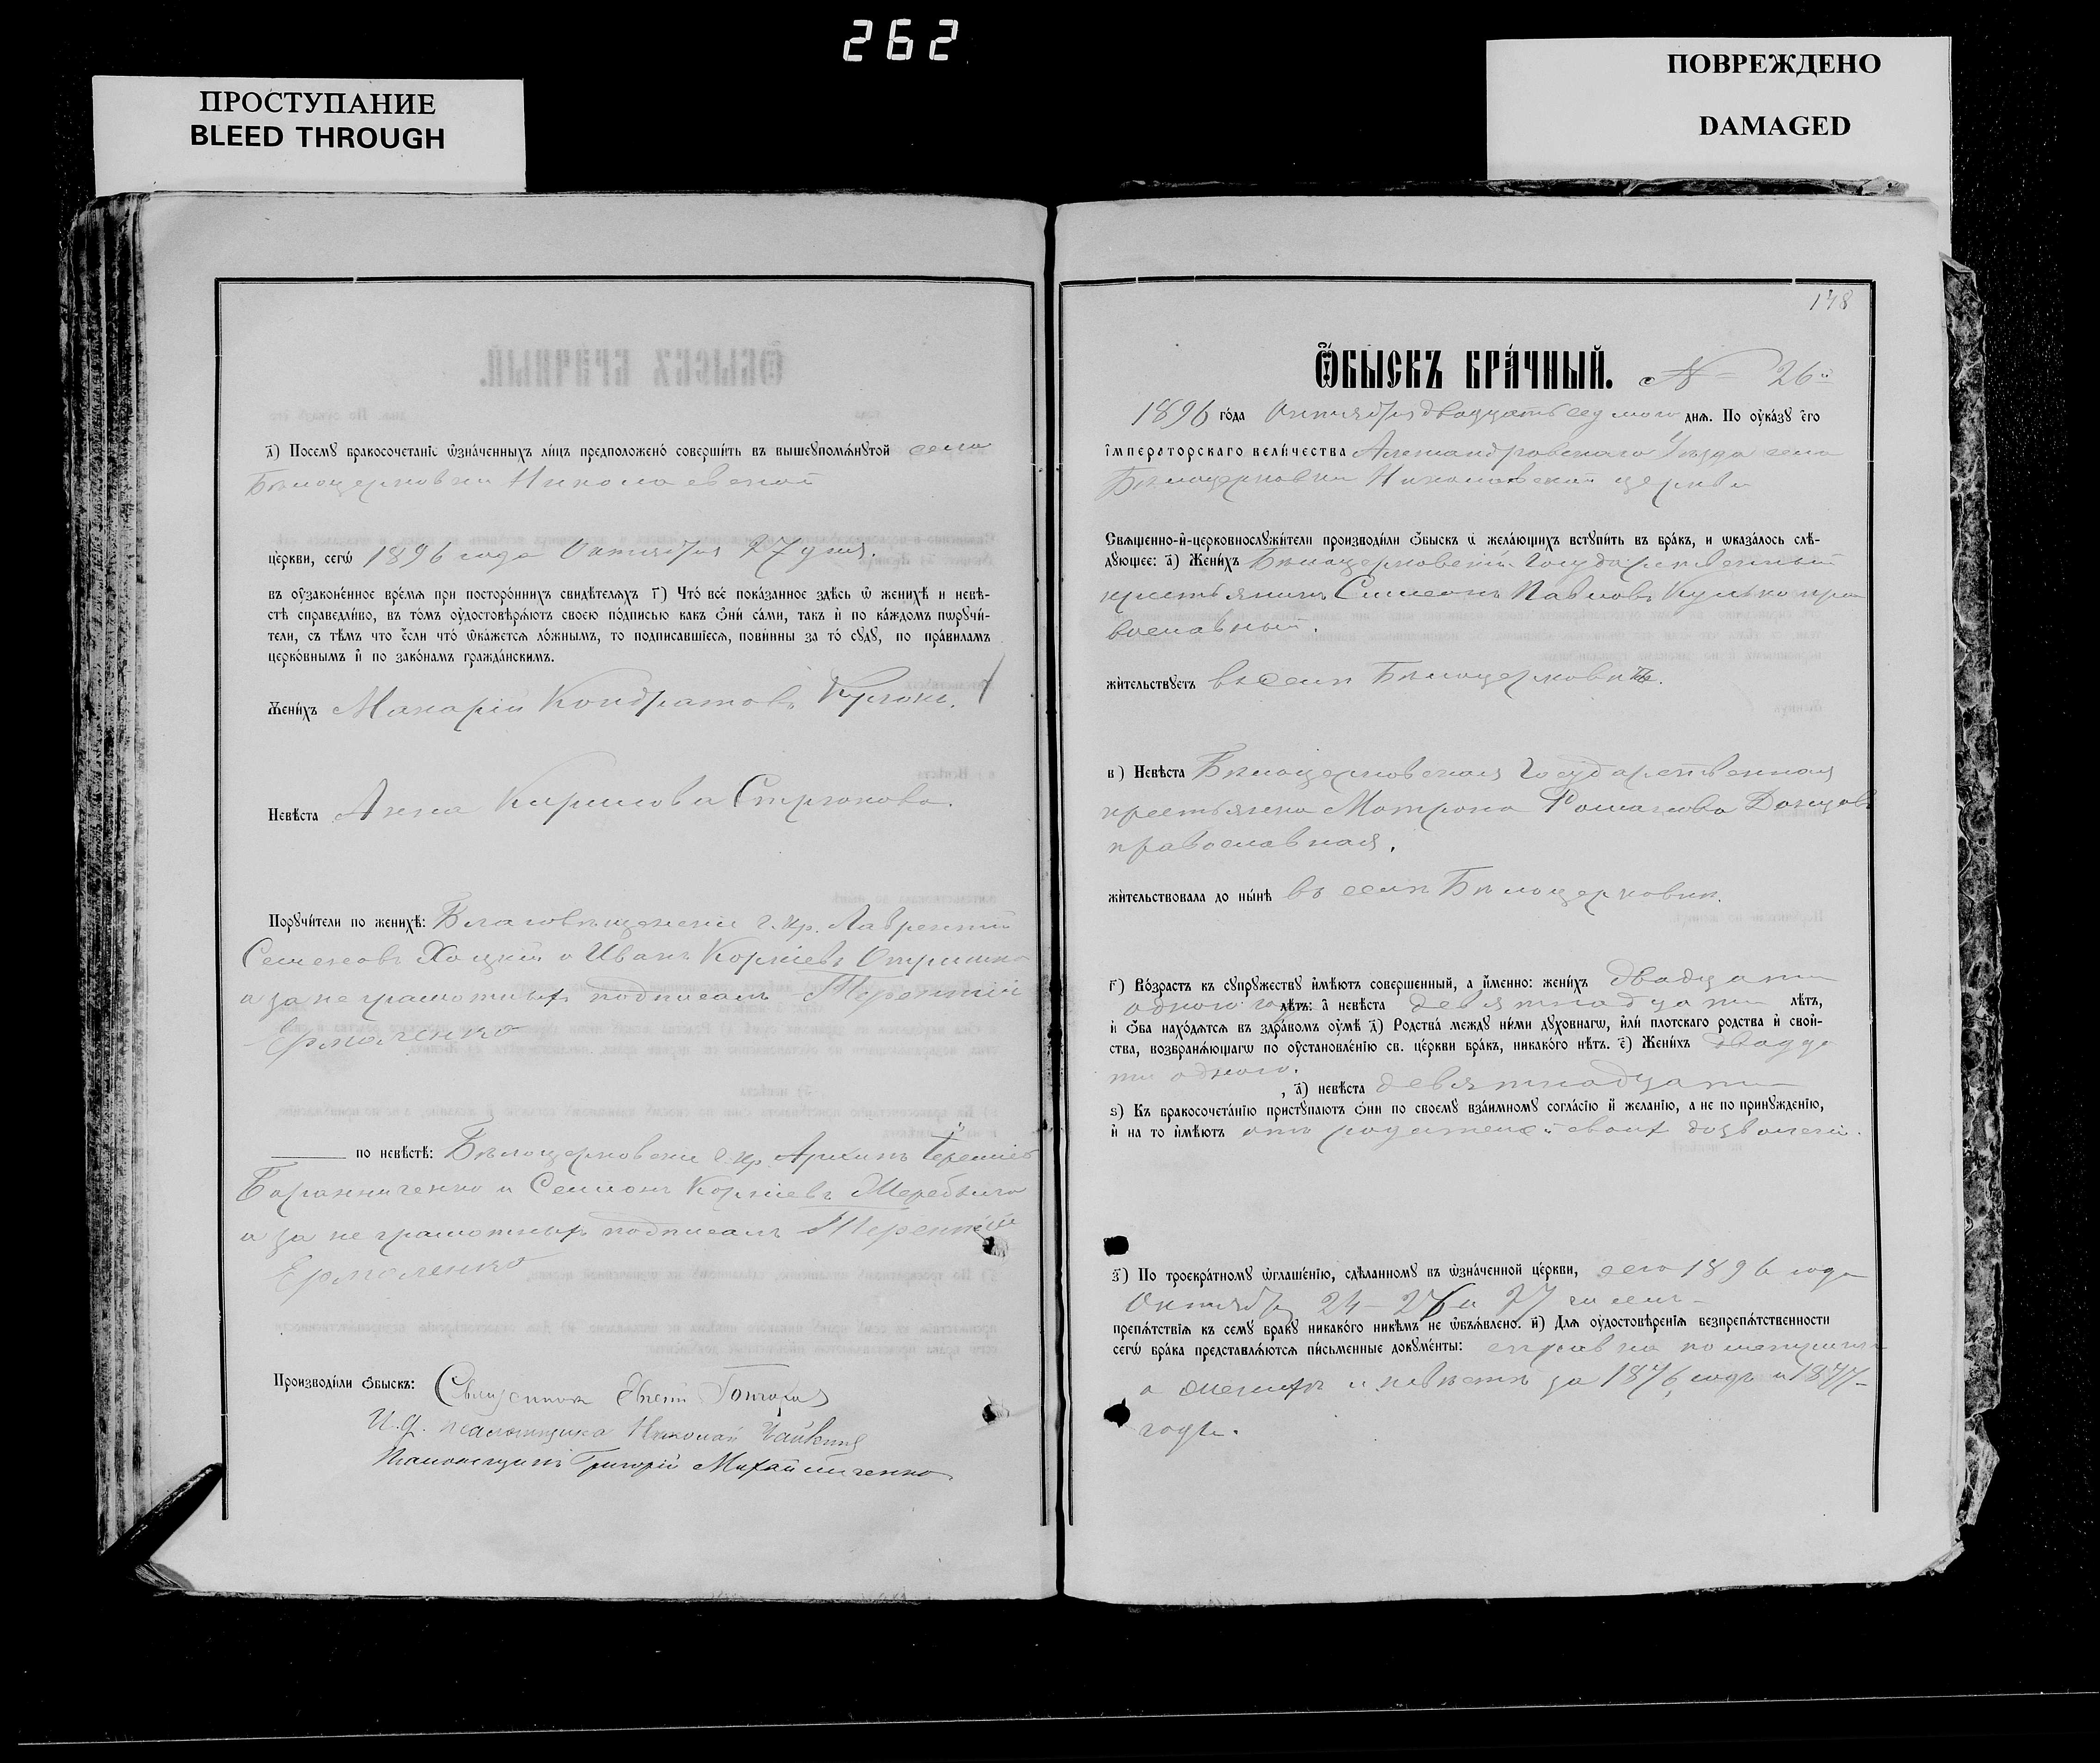 262
ПРОСТУПАНИЕ
BLEED THROUGH
ПОВРЕЖДЕНО
DAMAGED
д҃) Посемꙋ бракосочетанїе ѡ҆зна́ченныхъ ли́цъ предположено̀ соверши́ть въ вышеꙋпомѧ́нꙋтой села
Бѣлоцерковки Николаевской
це́ркви, сегѡ̀ 1896 года Октября 27 дня.
въ ᲂу҆зако́не́нное вре́мѧ при посторо́ннихъ свидѣ́телѧхъ г҃) Что̀ всѐ пока́занное здѣ́сь ѡ҆ женихѣ̀ и невѣ́-
стѣ справедли́во, въ то́мъ ᲂу҆достовѣрѧ́ютъ свое́ю по́дписью какъ ѻ҆нѝ са́ми, такъ и҆ по ка́ждомъ порꙋчи́-
тели, съ тѣ́мъ что є҆́сли что̀ ѡ҆ка́жетсѧ ло́жнымъ, то подписавшїесѧ, пови́нны за то̀ сꙋдꙋ̀, по пра́виламъ
церко́внымъ и҆ по зако́намъ гражда́нскимъ.
Жени́хъ Макарій Кондратовъ
Невѣ́ста Анна Кирилова Стрюкова.
Порꙋчи́тели по женихѣ̀: Благовѣщенскіи г. кр. Лаврентій
Семеновъ Хоцкій и Иванъ Корніевъ
а за неграмотныхъ подписалъ Терентій
Ермоленко
по невѣ́стѣ: Бѣлоцерковскіе г. кр.
и Семіонъ Корніевъ
а за неграмотныхъ подписалъ Терентій
Ермоленко
Производи́ли ѻ҆́быскъ: Священникъ
И. д. псаломщика Николай
Псаломщикъ Григорій Михайличенко
148
Ѻ҆́БЫСКЪ БРА́ЧНЫЙ. № 26й
1896 го́да Октября двадцать седьмого днѧ. По ᲂу҆ка́зꙋ є҆гѡ̀
і҆мпераорскагѡ вели́чества Александровскаго Уѣзда села
Бѣлоцерковки Николаевской церкви
Свѧще́нно-и҆-церковнослꙋжи́тели производи́ли ѻ҆́быскъ ѡ҆ жела́ющихъ встꙋпи́ть въ бра́къ, и ѡ҆каза́лось слѣ́-
дꙋющее: а҃) Жени́хъ Бѣлоцерковскій Государственный
крестьянинъ Симеонъ Павловъ Кулько пра
вославный.
жи́тельствꙋетъ въ селѣ Бѣлоцерковкѣ.
в҃) Невѣ́ста Бѣлоцерковская Государственная
крестьянка Матрона Романова
православная.
жи́тельствовала до ны́нѣ въ селѣ Бѣлоцерковки.
г҃) Во́зрастъ къ сꙋпрꙋ́жествꙋ и҆мѣ́ютъ соверше́нный, а и҆́менно: жени́хъ двадцати
одного года лѣ́тъ: а҆ невѣ́ста девятнадцати лѣ́тъ,
и҆ ѻ҆́ба нахо́дѧтсѧ въ здра́вомъ ᲂу҆мѣ̀ д҃) Родства̀ междꙋ ни́ми дꙋхо́внагѡ, и҆лѝ пло́тскаго родства̀ и҆ свой-
ства̀, возбранѧ́ющагѡ по ᲂу҆становле́нїю св. це́ркви бра́къ, никако́го нѣ́тъ. є҃) Жени́хъ двадца
ти одного.
, д҃) невѣ́ста девятнадцати
ѕ҃) Къ бракосочета́нїю пристꙋпа́ютъ ѻ҆нѝ по своемꙋ̀ вза́имномꙋ согла́сїю и҆ жела́нїю, а не по принꙋжде́нїю,
и҆ на то и҆мѣ́ютъ отъ родителей своих дозволеніе.
з҃) По троекра́тномꙋ ѡ҆глаше́нїю, сдѣ́ланномꙋ въ ѡ҆зна́ченной це́ркви, сего 1896 года
Октября 24 – 26 и 27 чиселъ
препѧ́тствїѧ къ семꙋ̀ бра́кꙋ никако́го никѣ́мъ не ѡ҆б̾ѧ́влено. и҃) Длѧ ᲂу҆достовѣре́нїѧ безпрепѧ́тственности
сегѡ̀ бра́ка представлѧ́ютсѧ пи́сьменные докꙋме́нты: справка по метрикамъ
о женихѣ и невѣстѣ за 1876 годъ и 1877
годъ.